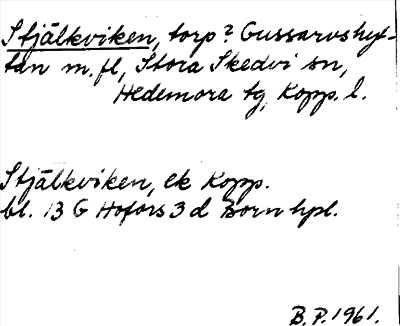 Stjälkviken, torp? Gussarvshyt-
tan m.fl, Stora Skedvi sn,
Hedemora tg, Kopp. l.
Stjälkviken, ek Kopp.
bl. 13 G Hofors 3 d Born hpl.
B.P. 1961.